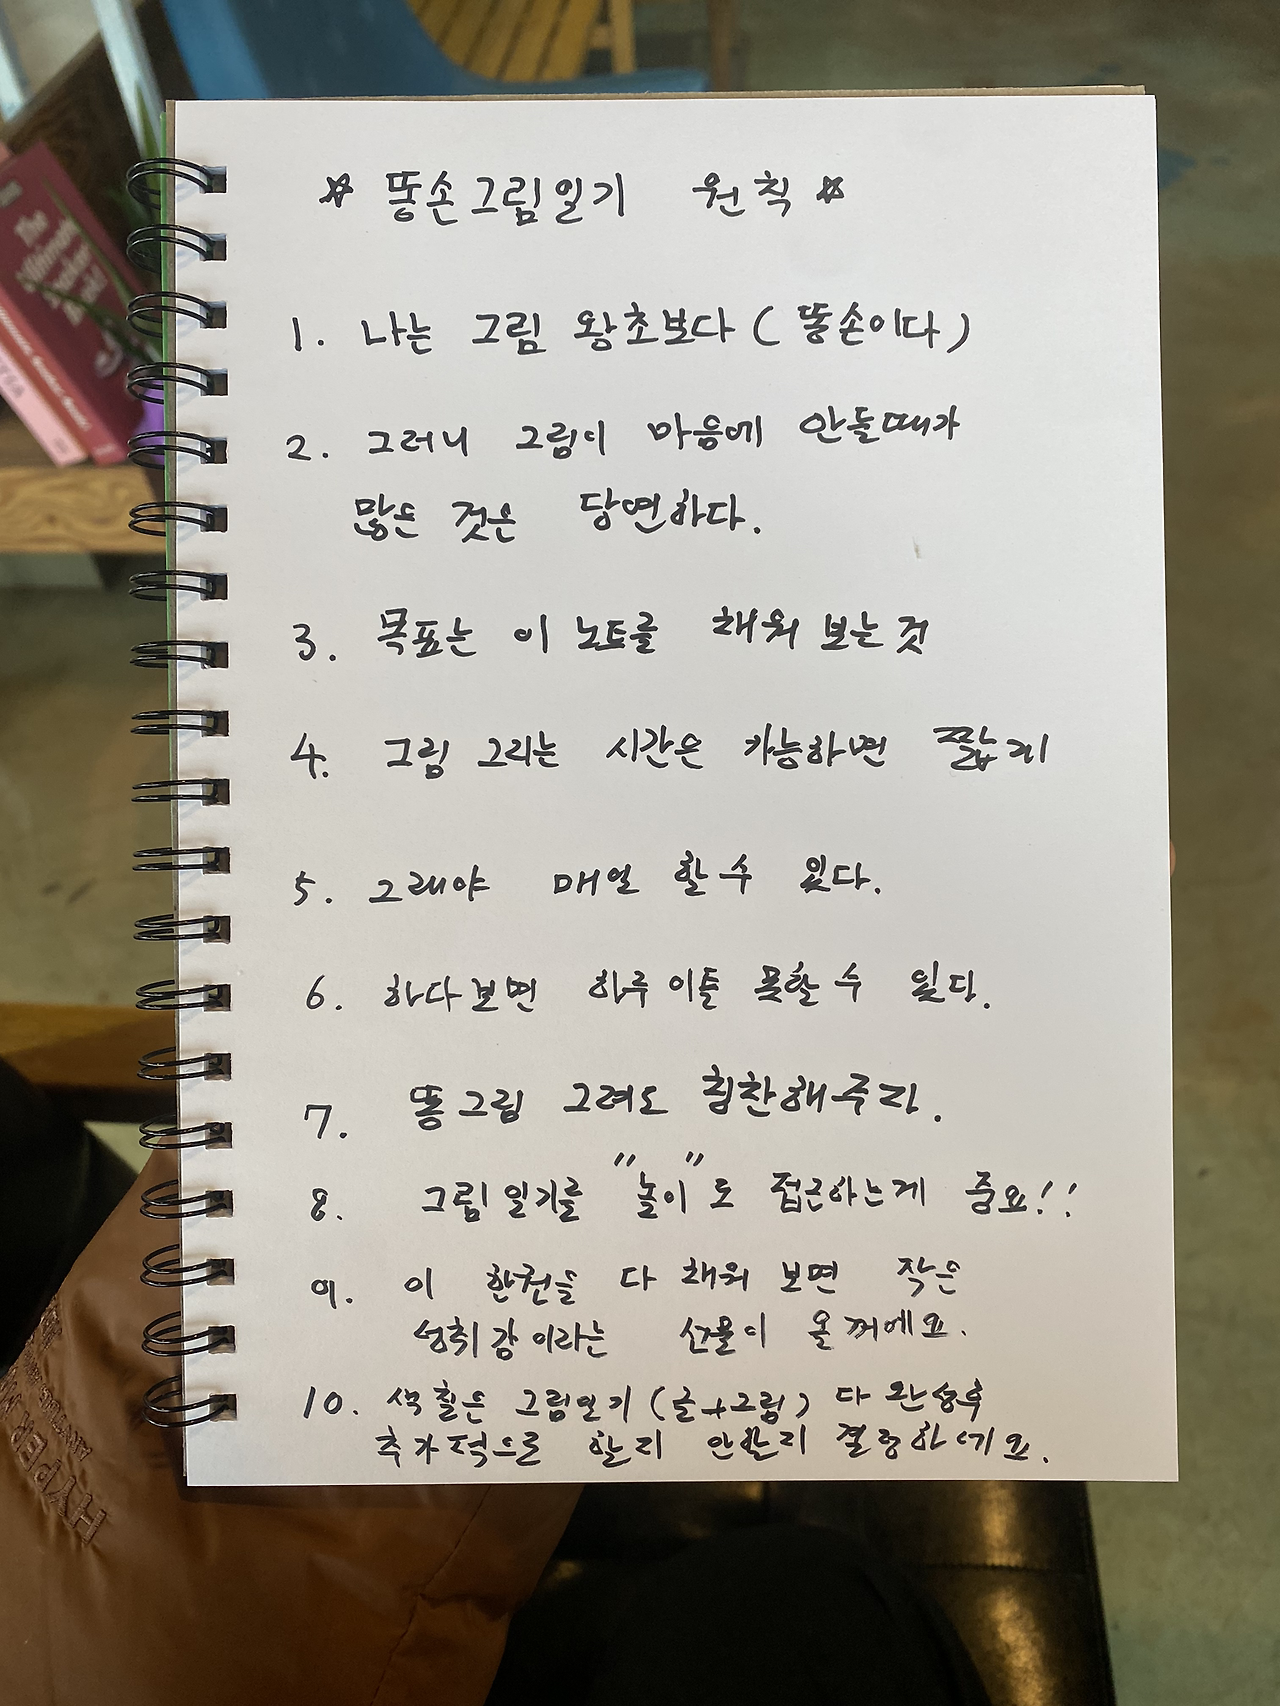 ☆ 똥손그림일기 원칙 ☆
1. 나는 그림 왕초보다 ( 똥손이다 )
2. 그러니 그림이 마음에 안들때가
많은 것은 당연하다.
3. 목표는 이 노트를 채워 보는것
4. 그림 그리는 시간은 가능하면 짧게
5. 그래야 매일 할수 있다.
6. 하다보면 하루이틀 못할수 있다.
7. 똥그림 그려도 칭찬해주자.
8. 그림일기를 "놀이"로 접근하는게 중요!!
9. 이 한권을 다 채워 보면 작은
성취감이라는 선물이 올꺼에요.
10. 색칠은 그림일기 (글+그림) 다 완성후
추가적으로 할지 안할지 결정하세요.
HYPER